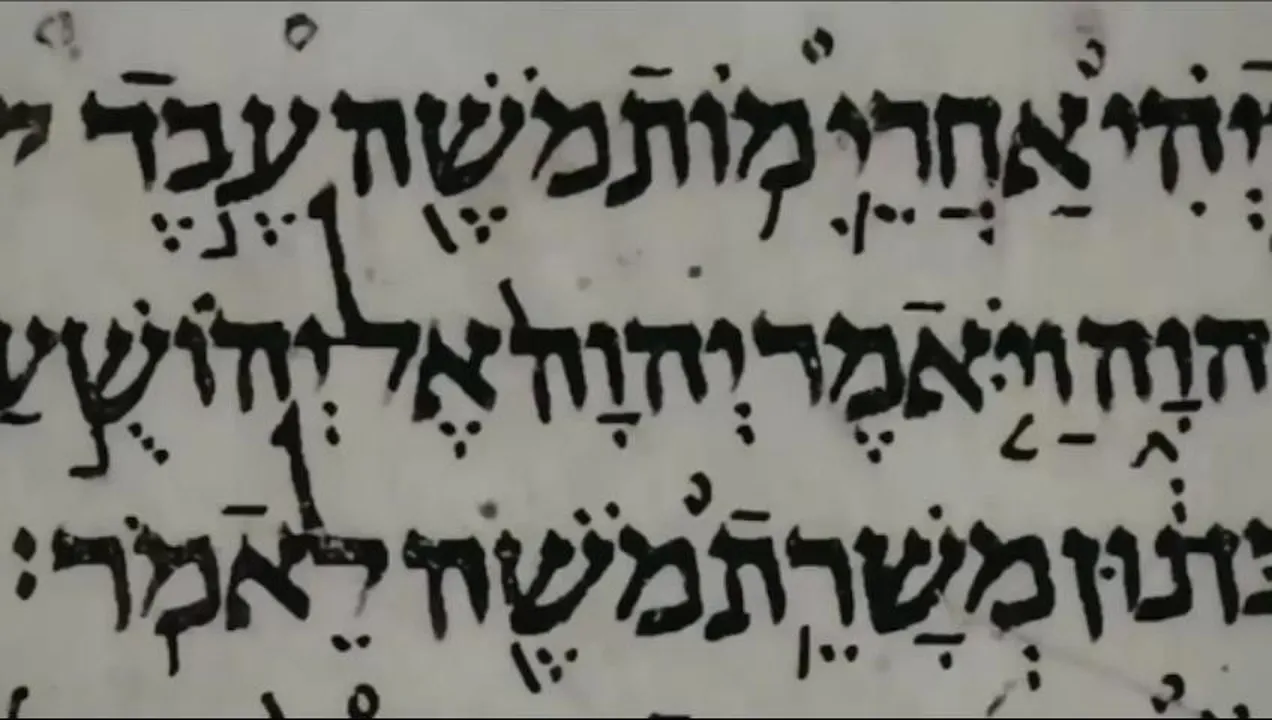 יְהִ֗י אַחֲרֵ֛י מ֥וֹת מֹשֶׁ֖ה עֶ֣בֶד
הוָ֑ה וַיֹּ֤אמֶר יְהוָה֙ אֶל יְהוֹשֻׁ֣עַ
נ֔וּן מְשָׁרֵ֥ת מֹשֶׁ֖ה לֵאמֹ֑ר׃